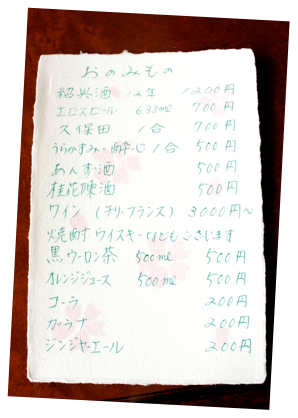 おのみもの
紹興酒 12年 1200円
エビスビール 633ml 700円
久保田 1合 700円
うらかすみ・酔心 1合 500円
あんず酒 500円
桂花陳酒 500円
ワイン (チリ・フランス) 3000円〜
焼酎 ウイスキーなどもございます
黒ウーロン茶 500ml 500円
オレンジジュース 500ml 500円
コーラ 200円
ガラナ 200円
ジンジャーエール 200円